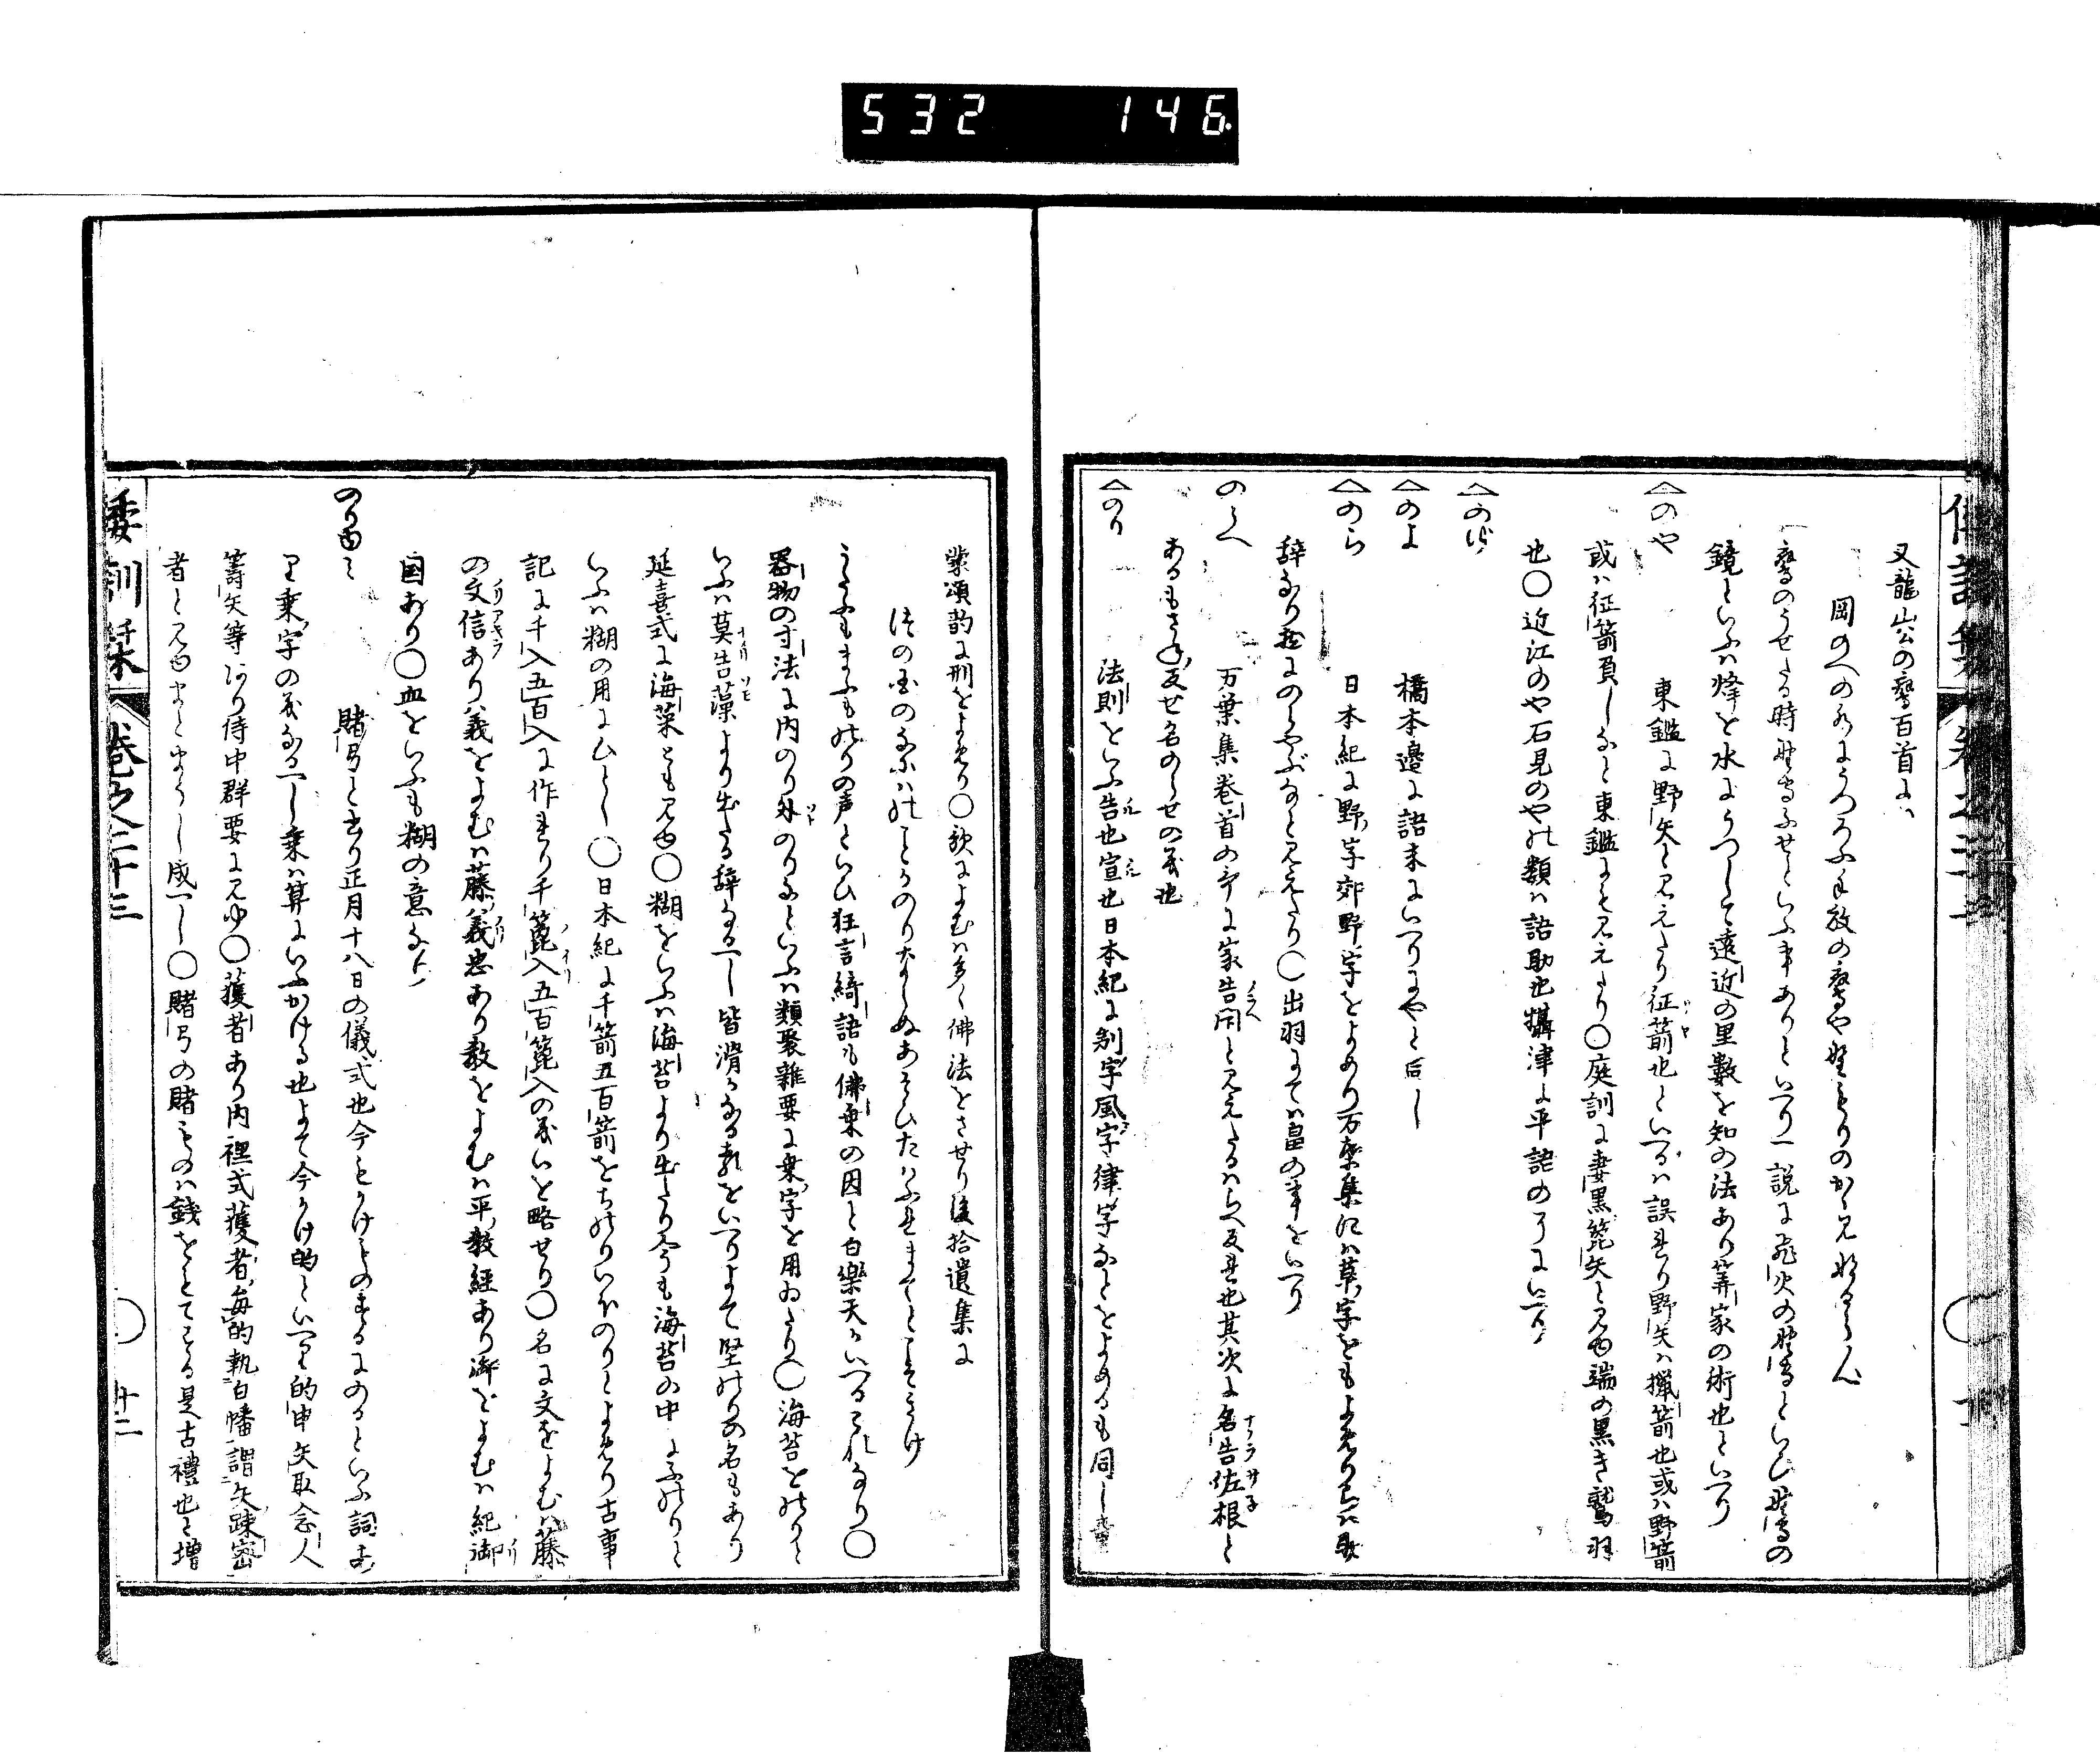 532 146
又龍山公の鷹百首に
岡のへの水にうつろふ手放の鷹や野もりのかゝ見なるらん
鷹のうせたる時野守ふせといふ事ありといへり一説に飛火の野守といひ野守の
鏡といふハ烽を水にうつして遠近の里數を知の法あり筭家の術也といへり
△のや 東鑑に野矢と見えたり征箭也といへるハ誤れり野矢ハ獵箭也或ハ野箭
或ハ征箭負しなと東鑑にも見えたり○庭訓に妻黒箆矢と見ゆ端の黒き鷲羽
也○近江のや石見のやの類ハ語助也攝津に平語の
△のゆ
△のよ 橋本邊に語末にいへり
△のら 日本紀に野字郊野字をよめり万葉集にハ草字をもよめり
辞なり
なと見えたり○出羽にてハ畠の事をいへり
のらへ 万葉集卷首の哥に家告閇と見えたるハらへ反れ也其次に名告佐根と
あるもさね反せ名のらせの義也
△のり 法則をいふ告也宣也日本紀に制字風字律字なとをよめるも同し
蒙頌韵に刑をよめり○歌によむハ多く佛法をさせり後拾遺集に
つの国のなにハのことかのりならぬあそひたハふれまてとこそきけ
うたふもまふものりの声といひ狂言綺語も佛乗の因と白樂天かいへるこれなり○
器物の寸法に内のり外のりなといふハ類聚雜要に乗字を用ゐたり○海苔をのりと
いふハ莫告藻より出たる辞なるへし皆滑かなる義をいへりよて堅のりの名もあり
延喜式に海菜とも見ゆ○糊をいふハ海苔より出たり今も海苔の中にふのりと
いふハ糊の用にひとし○日本紀に千箭五百箭をちのりいほのりとよめり古事
記に千入五百入に作れり千箆入五百箆入の義いを略せり○名に文をよむハ藤
の文信あり義をよむハ藤義忠あり教をよむハ平教経あり御をよむハ紀御
国あり○血をいふも糊の意なり
のりゆみ 賭弓と書り正月十八日の儀式也今もかけものするにのるといふ詞あ
り乗字の義なるへし乗ハ算にいふかける也よて今かけ的といへり的申矢取念人
籌矢等あり侍中群要に見ゆ○獲者あり内裡式獲者毎的執白幡謂矢疎密
者と見ゆまとまうし成へし○賭弓の賭ものハ錢をとてする是古禮也と増
倭訓栞 卷之二十三 廿二